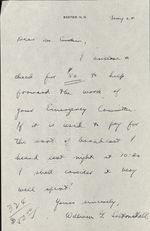 EXETER, N. H.
May 20
Dear Mr. Einstein,
I enclose a
check for $50 to help
forward the work of
your Emergency Committee.
If it is used to pay for
the sort of broadcast I
heard last night at 10:30
I shall consider it very
well spent!
Yours sincerely,
William G. Saltonstall